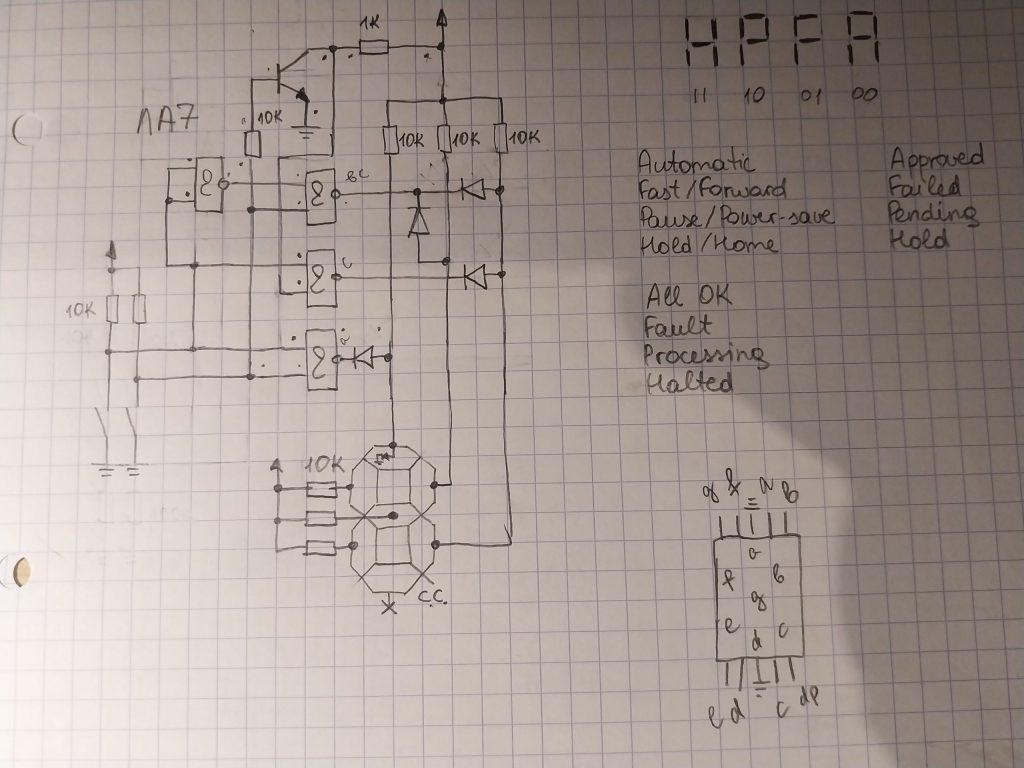 1K
HPFA
11 10 01 00
ЛА7
10K
10K 10K 10K
Automatic
Fast/Forward
Pause/Power-save
Hold/Home
Approved
Failed
Pending
Hold
&
& BC
& C
&
10K
All OK
Fault
Processing
Halted
10K
C.C.
g f a b
a
f b
g
e c
d
e d c dp